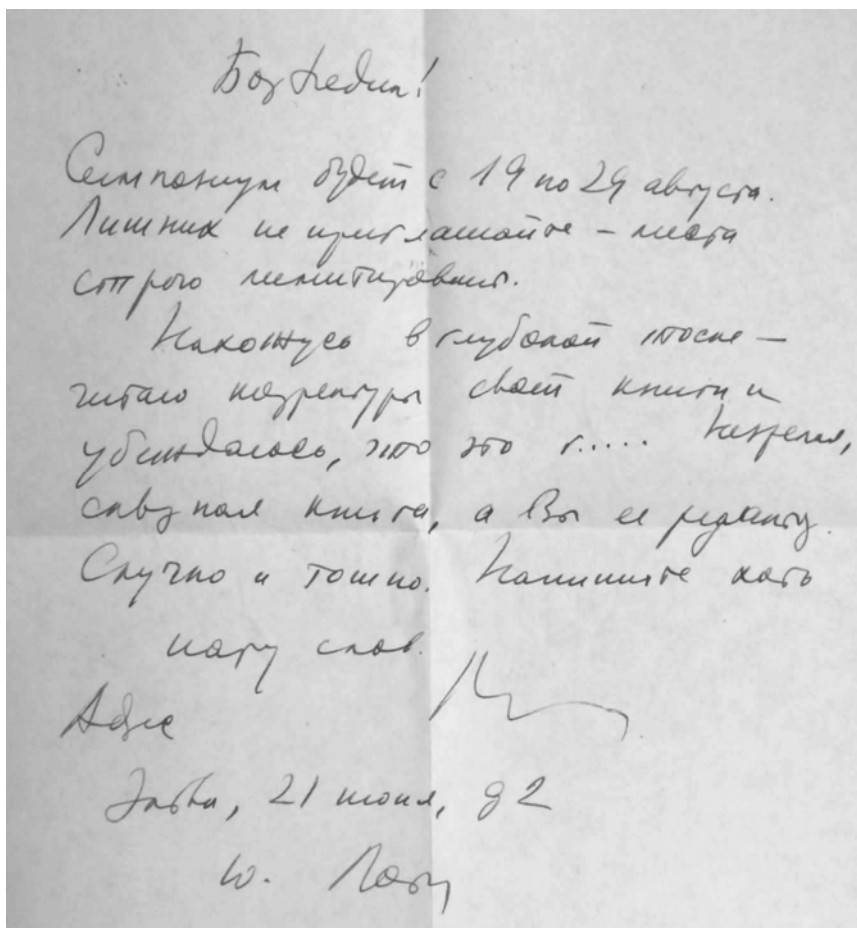 Симпозиум будет с 19 по 29 августа.
Лишних не приглашайте – места
строго лимитированы.
Нахожусь в глубокой тоске –
читаю корректуры своей книги и
убеждаюсь, что это г.....
скучная книга, а Вы ее
Скучно и тошно. Напишите хоть
пару слов.
21 июня, 82
Ю. Лотм